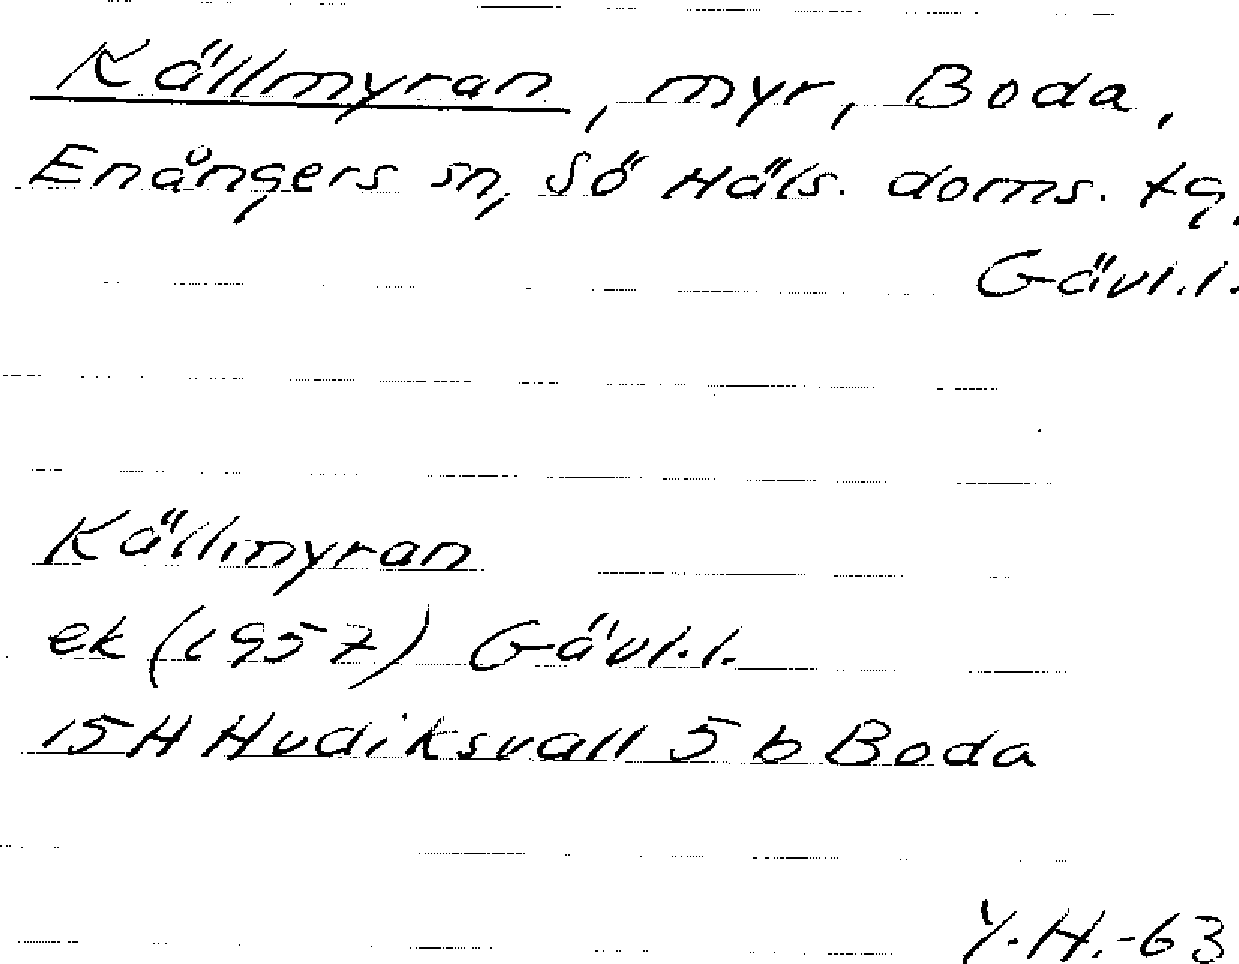 Källmyran, myr, Boda,
Enångers sn, Sö Häls. doms. tg.
Gävl.l.
Källmyran
ek (1957) Gävl.l.
15H Hudiksvall 5 b Boda
Y.H.-63